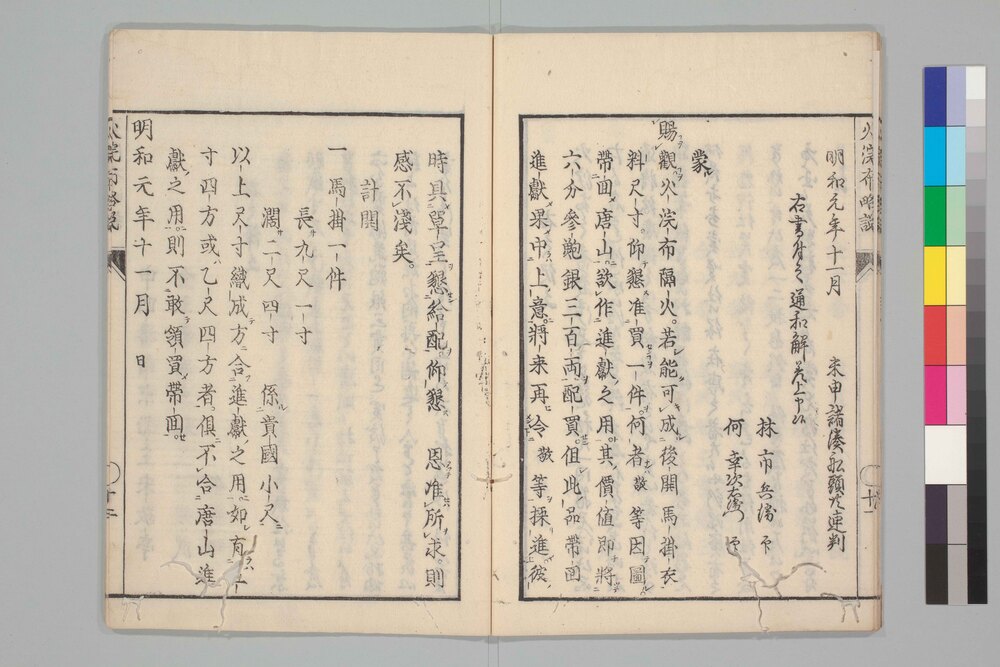 火浣布略説
明和元年十一月　未申諸湊舩頭共連判
右書付之通和解差上申候
林市兵衛 印
何幸次右衛門 印
蒙
賜觀火浣布隔火。若能可成後開馬掛衣
料尺寸。仰懇准買一件。何者敬等因圖
帶回唐山。欲作進獻之用。其價値即將
六分參鮑銀三百両配買。但此品帶回
進獻。果中上意。將来再令敬等採進彼
十二
時具單呈懇給配。仰懇　恩准所求。則
感不淺矣。
計開
一　馬掛一件
長九尺一寸
濶二尺四寸　係貴國小尺
以上尺寸織成方合進獻之用。如有一
寸四方或乙尺四方者。俱不合唐山進
獻之用。則不敢領買帶回。
明和元年十一月　日
火浣布略説
十二